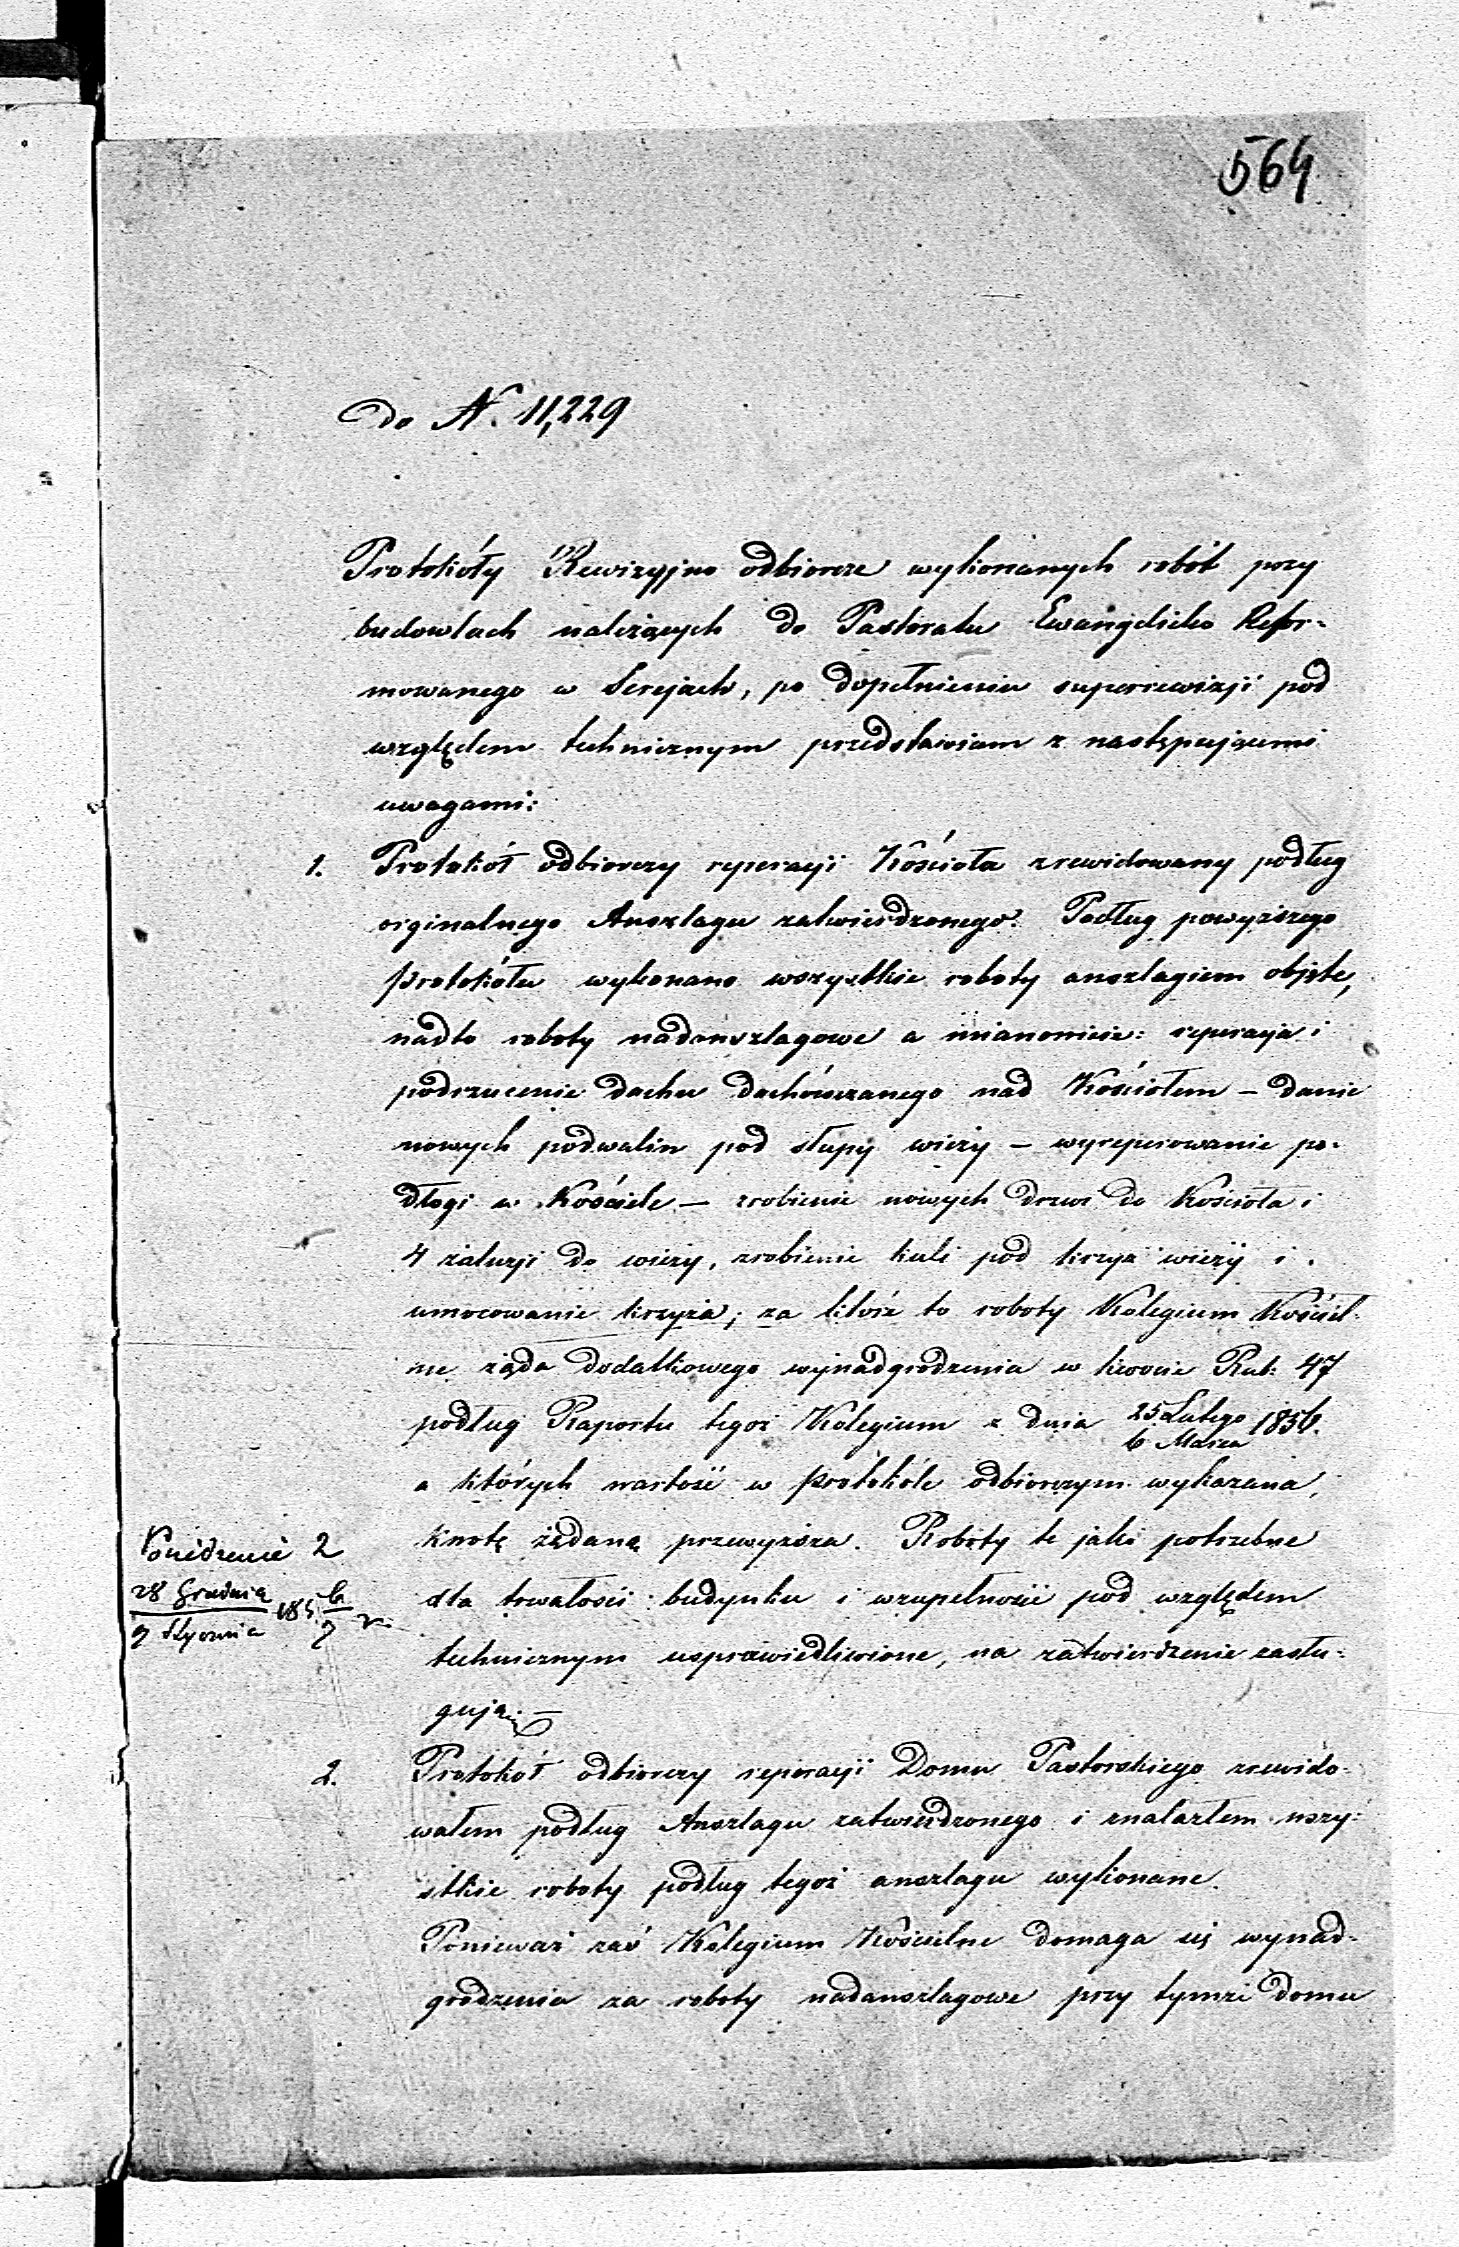 564
do N. 11,229
Protokóły Rewizyjno odbiorcze wykonanych robót przy
budowlach należących do Pastoratu Ewangelicko Refor-
mowanego w Serejach, po dopełnieniu superrewizji pod
względem technicznym przedstawiam z następującemi
uwagami:
1. Protokół odbiorczy reperacji Kościoła zrewidowany podług
originalnego Anszlagu zatwierdzonego. Podług powyższego
protokółu wykonano wszystkie roboty anszlagiem objęte,
nadto roboty nadanszlagowe a mianowicie: reperacja i
podrzucenie dachu dachówczanego nad Kościołem – danie
nowych podwalin pod słupy wieży – wyreperowanie po-
dłogi w Kościele – zrobienie nowych drzwi do Kościoła i
4 żaluzji do wieży, zrobienie kuli pod krzyż wieży i
umocowanie krzyża; za któreż to roboty Kolegium Kościel-
ne żąda dodatkowego wynadgrodzenia w kwocie Rub: 47
podług Raportu tegoż Kolegium z dnia 25 Lutego 1856.
6 Marca
a których wartość w protokóle odbiorczym wykazana,
kwotę żądaną przewyższa. Roboty te jako potrzebne
dla trwałości budynku i wzupełności pod względem
technicznym usprawiedliwione, na zatwierdzenie zasłu-
gują. –
Posiedzenie 2
28 Grudnia 185 6
9 Stycznia 7 r.
2. Protokół odbiorczy reperacji Domu Pastorskiego zrewido-
wałem podług Anszlagu zatwierdzonego i znalazłem wszy-
stkie roboty podług tegoż anszlagu wykonane.
Ponieważ zaś Kolegium Kościelne domaga się wynad-
grodzenia za roboty nadanszlagowe przy tymże domu